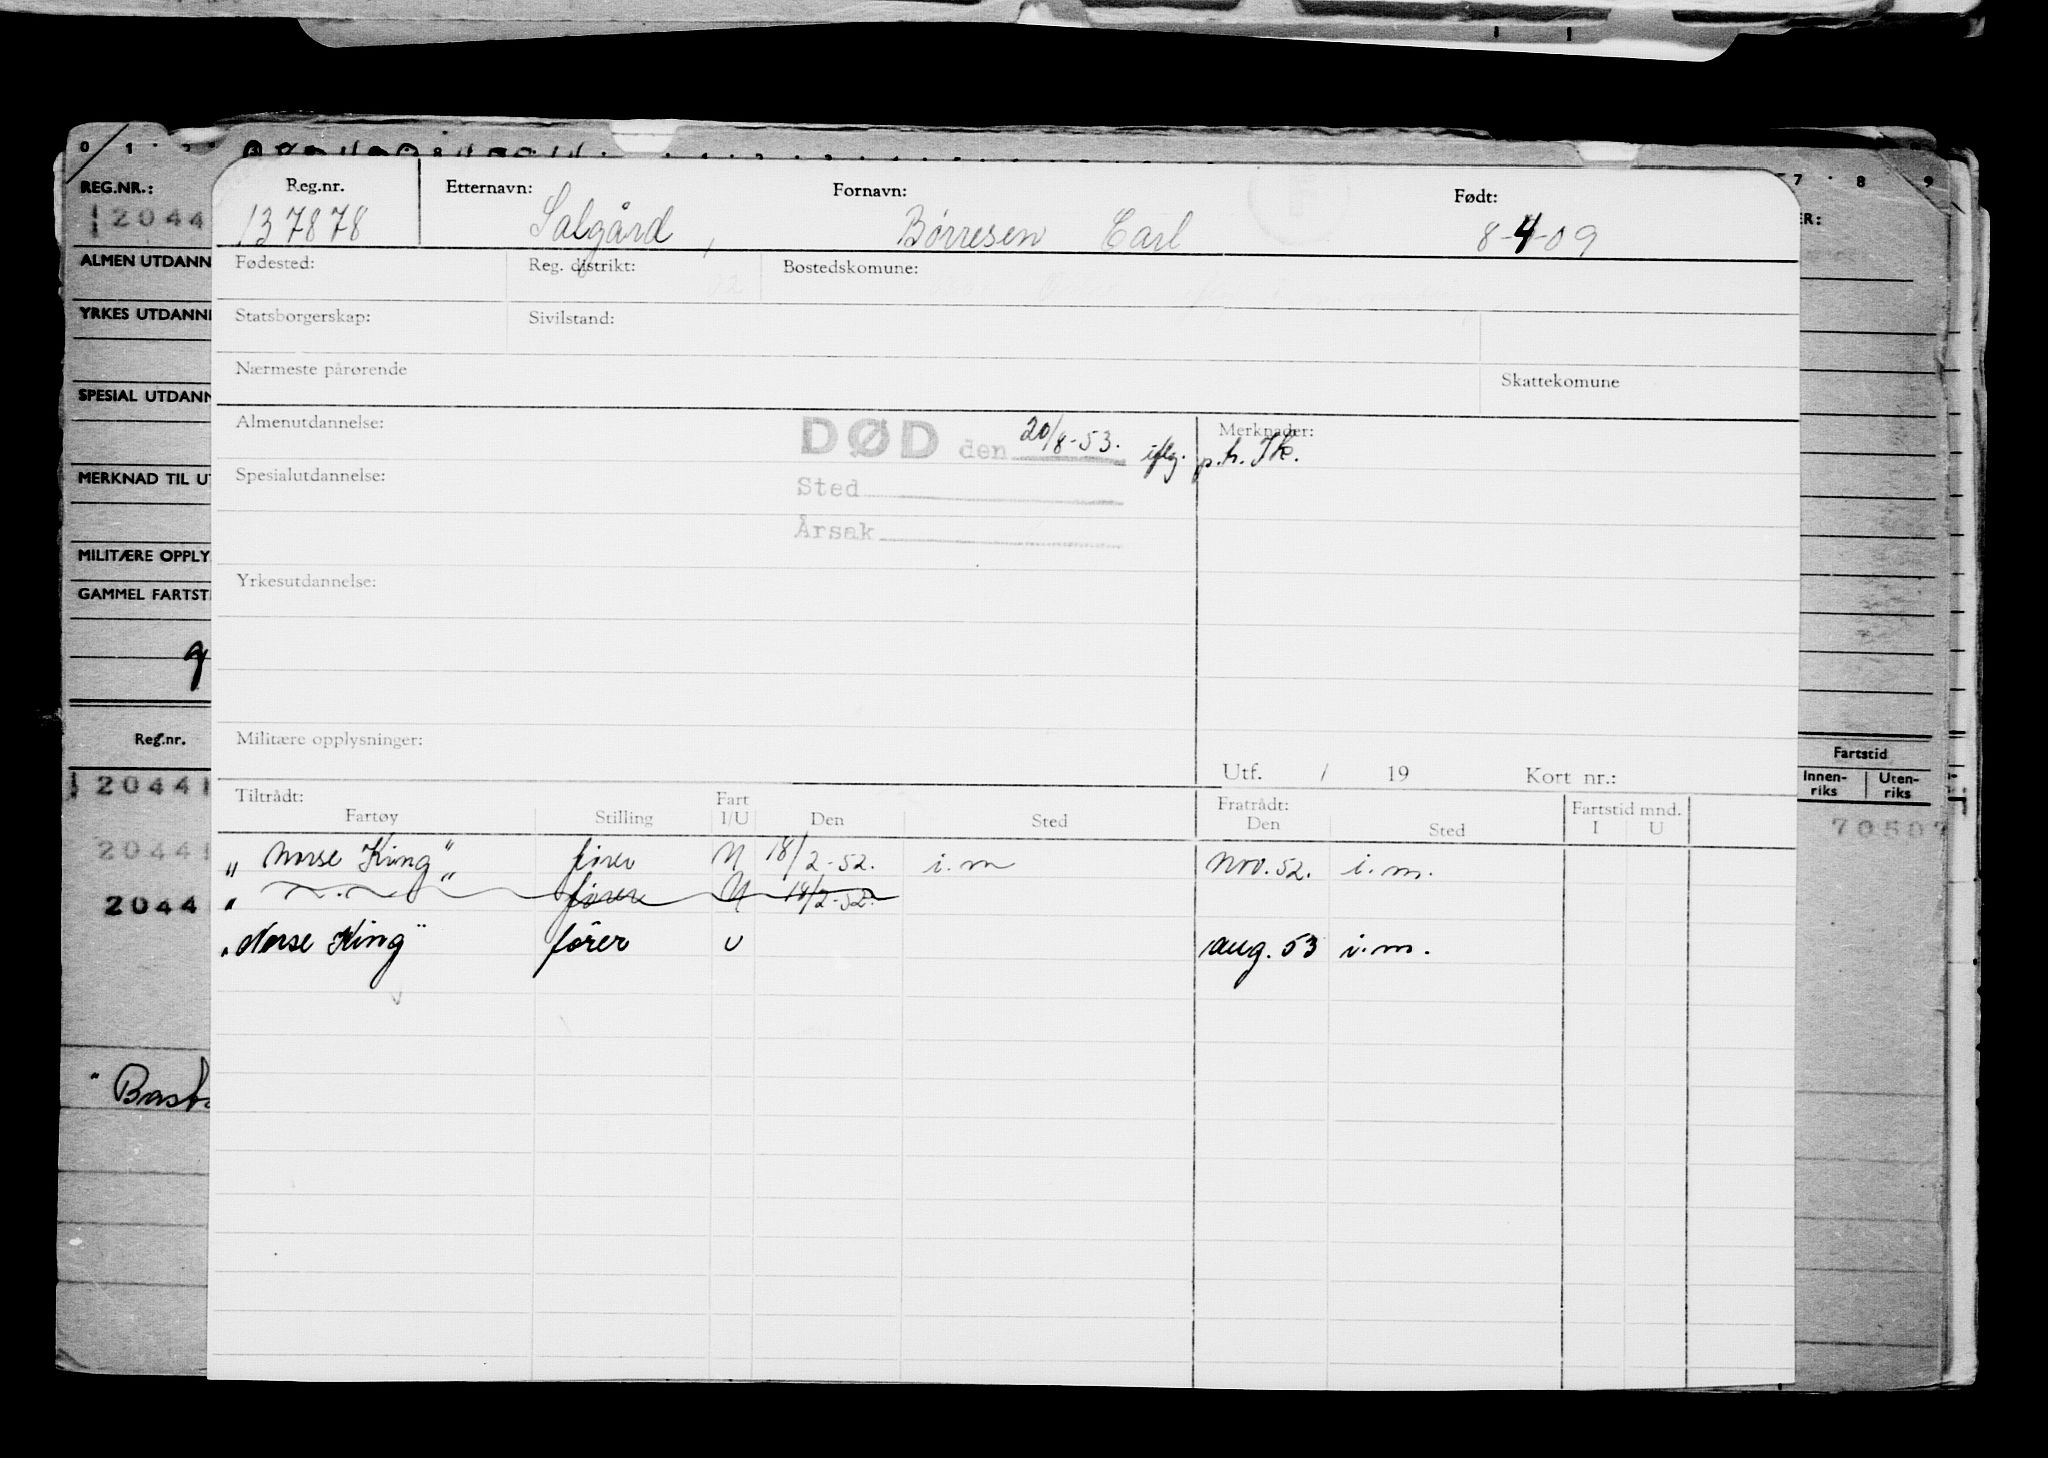 0 1 2
7 8 9
REG.NR.: Reg.nr. Etternavn: Fornavn: Født:
12044 137878 Salgård, Børresen Carl 8-4-09
ALMEN UTDANN Fødested: Reg. distrikt: Bostedskomune:
YRKES UTDANN Statsborgerskap: Sivilstand:
Nærmeste pårørende Skattekomune
SPESIAL UTDANN
Almenutdannelse: DØD den 20/8-53. iflg. p.h. Merknader:
MERKNAD TIL UT Spesialutdannelse: Sted
Årsak
MILITÆRE OPPLY
GAMMEL FARTST Yrkesutdannelse:
Reg.nr. Militære opplysninger: Fartstid
Utf. / 19 Kort nr.: Innen-riks Uten-riks
20441 Tiltrådt: Fratrådt: Fartstid mnd.
Fartøy Stilling Fart I/U Den Sted Den Sted I U 70507
20441 "Norse King" fører U 18/2-52. i.m nov. 52. i.m.
2044 " fører U 18/2-52.
"Norse King" fører U aug. 53 i.m.
"Bast